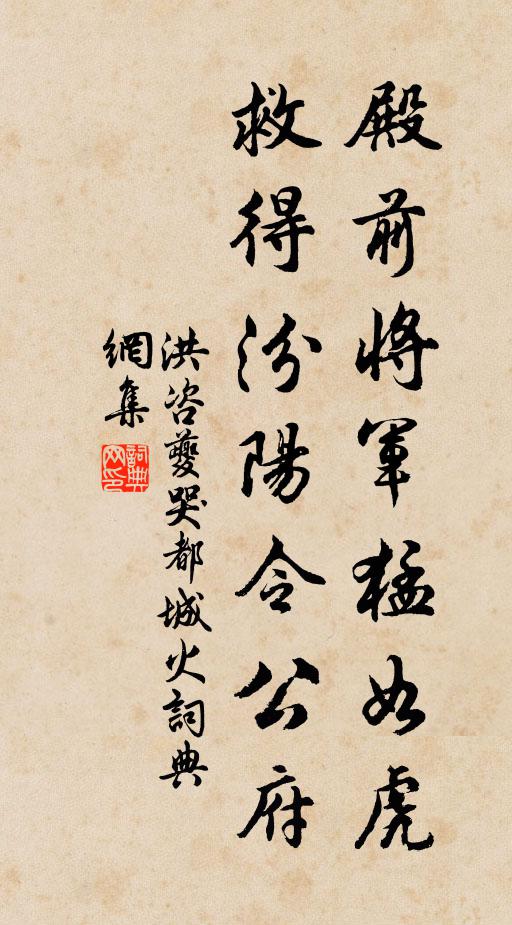 殿前將軍猛如虎
救得汾陽令公府
洪咨夔哭都城火詞典
網集
詞典網印